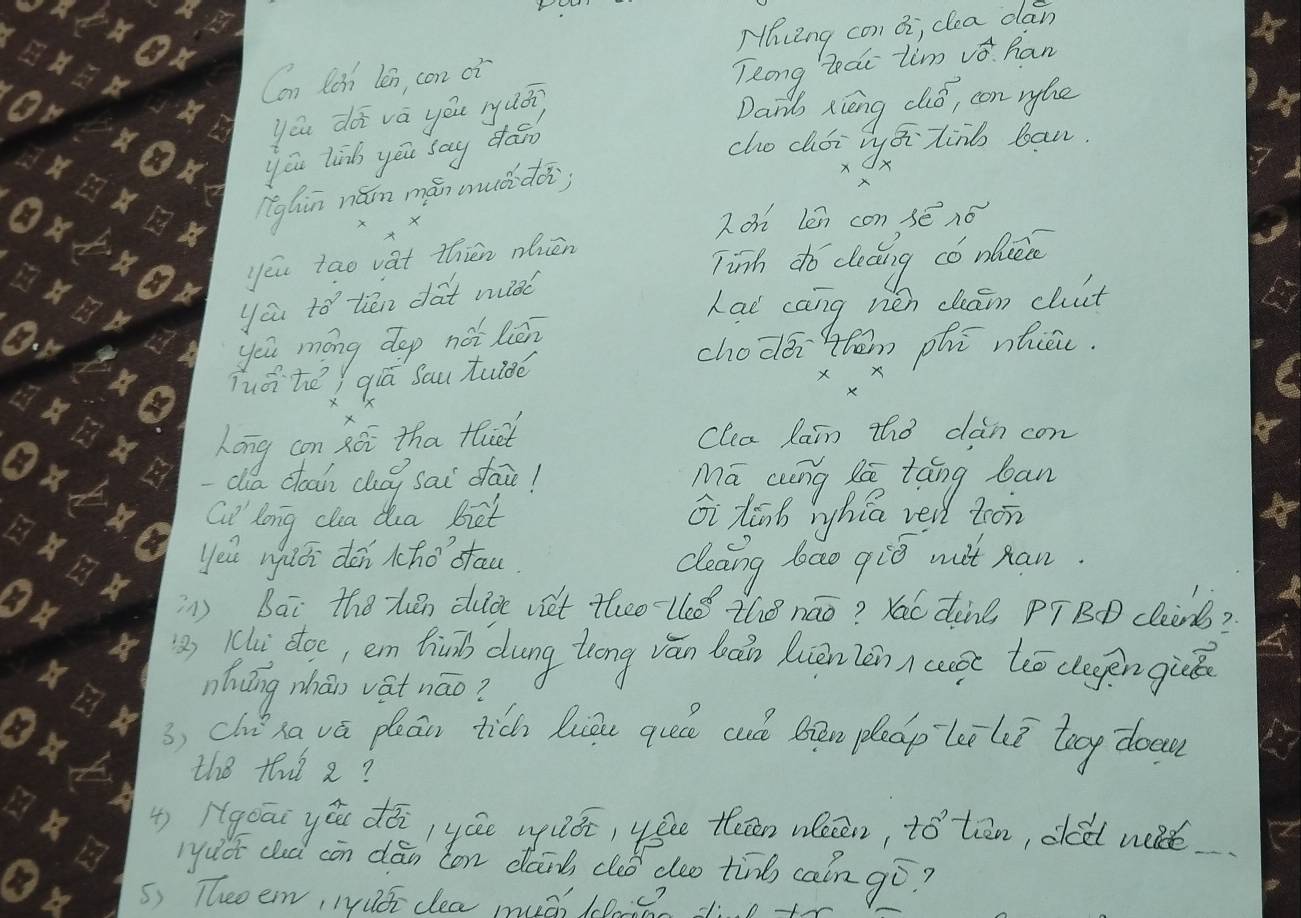 Con lớn lên, con ơi
yêu đời và yêu người,
yêu tình yêu say đắm
Nghìn năm mặn muối đời;
x x x
yêu tạo vật thiên nhiên
yêu tổ tiên đất nước
yêu mộng đẹp nối liền
Tuổi trẻ, già sau trước
x x x
Lòng con rồi tha thiết
- cha đoán chẳng sai đâu!
Cứ lòng cha cha biết
yêu người đến khổ đau.
Nhưng con ơi, cha dặn
Trong trái tim vô hạn
Dành riêng chỗ, con nghe
cho chói ngời tình bạn.
x x x
Lớn lên con sẽ rõ
Tình đó chẳng có nhiều
Lại càng nên chăm chút
cho đời thêm phì nhiêu.
x x x
Cha làm thơ dặn con
Mà cũng là tặng bạn
Ôi tình nghĩa vẹn tròn
chẳng bao giờ nứt rạn.
1) Bài thơ trên được viết theo thể thơ nào? Xác định PTBĐ chính?
2) Khi đọc, em hình dung trong văn bản hiện lên 1 cuộc trò chuyện giữa
những nhân vật nào?
3) chỉ ra và phân tích hiệu quả của biện pháp tu từ trong đoạn
thơ thứ 2?
4) Ngoài yêu đời, yêu người, yêu thiên nhiên, tổ tiên, đất nước...
người cha còn dặn con dành chỗ cho tình cảm gì?
5) Theo em, người cha muốn khẳng định